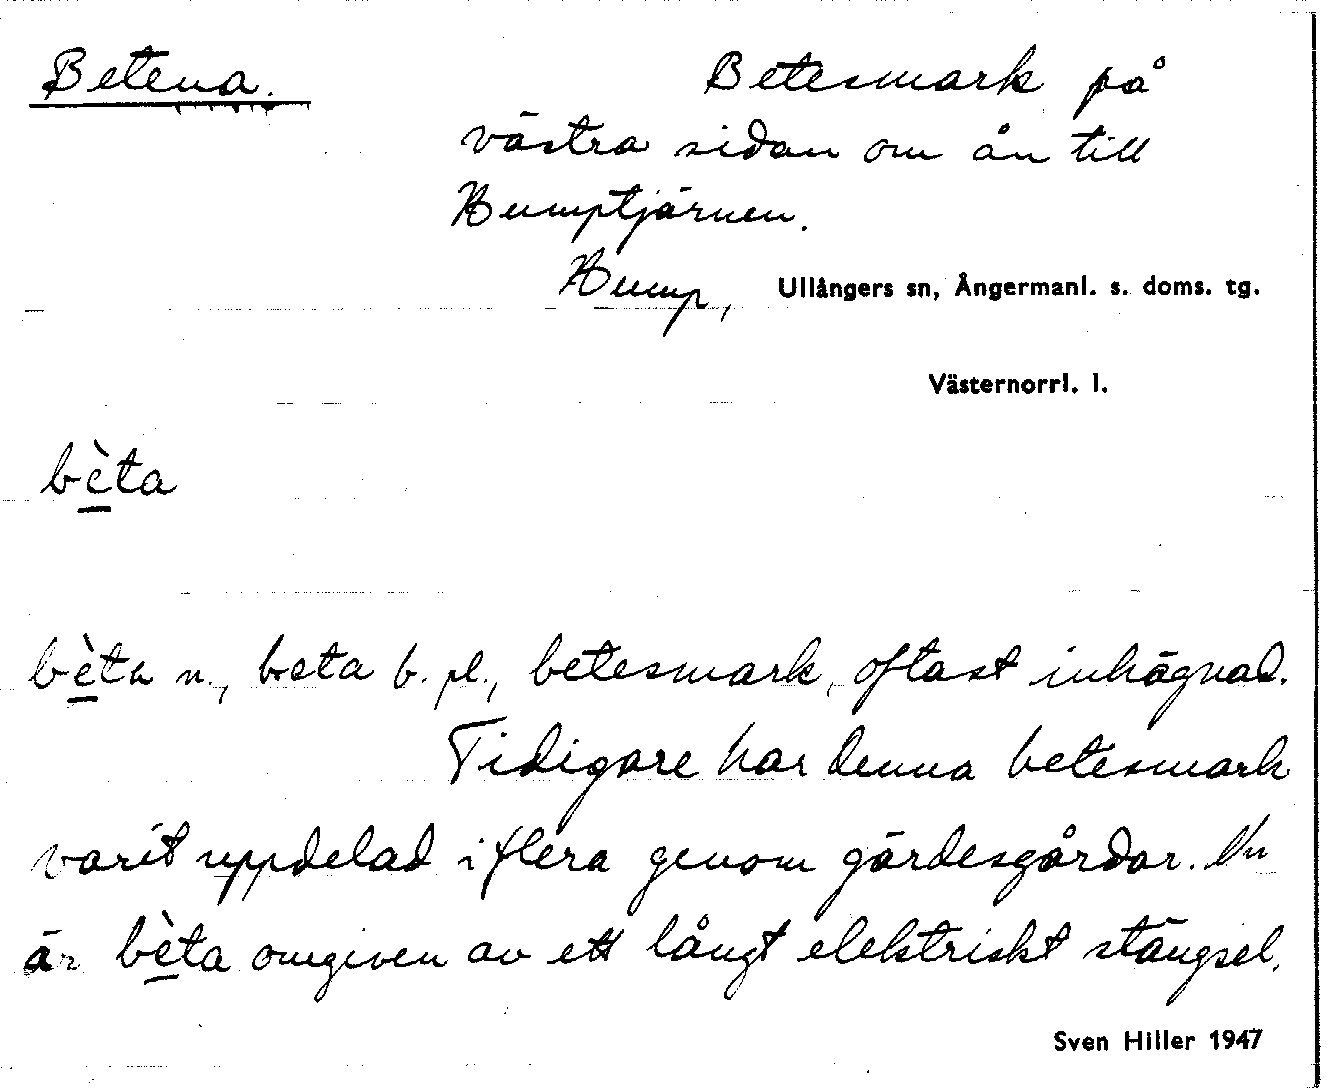 Betena. Betesmark på
västra sidan om ån till
Bumptjärnen.
Bump, Ullångers sn, Ångermanl. s. doms. tg.
Västernorrl. l.
bèta
bèta n., beta b. pl., betesmark, oftast inhägnad.
Tidigare har denna betesmark
varit uppdelad i flera genom gärdesgårdar. Nu
är bèta omgiven av ett långt elektriskt stängsel.
Sven Hiller 1947